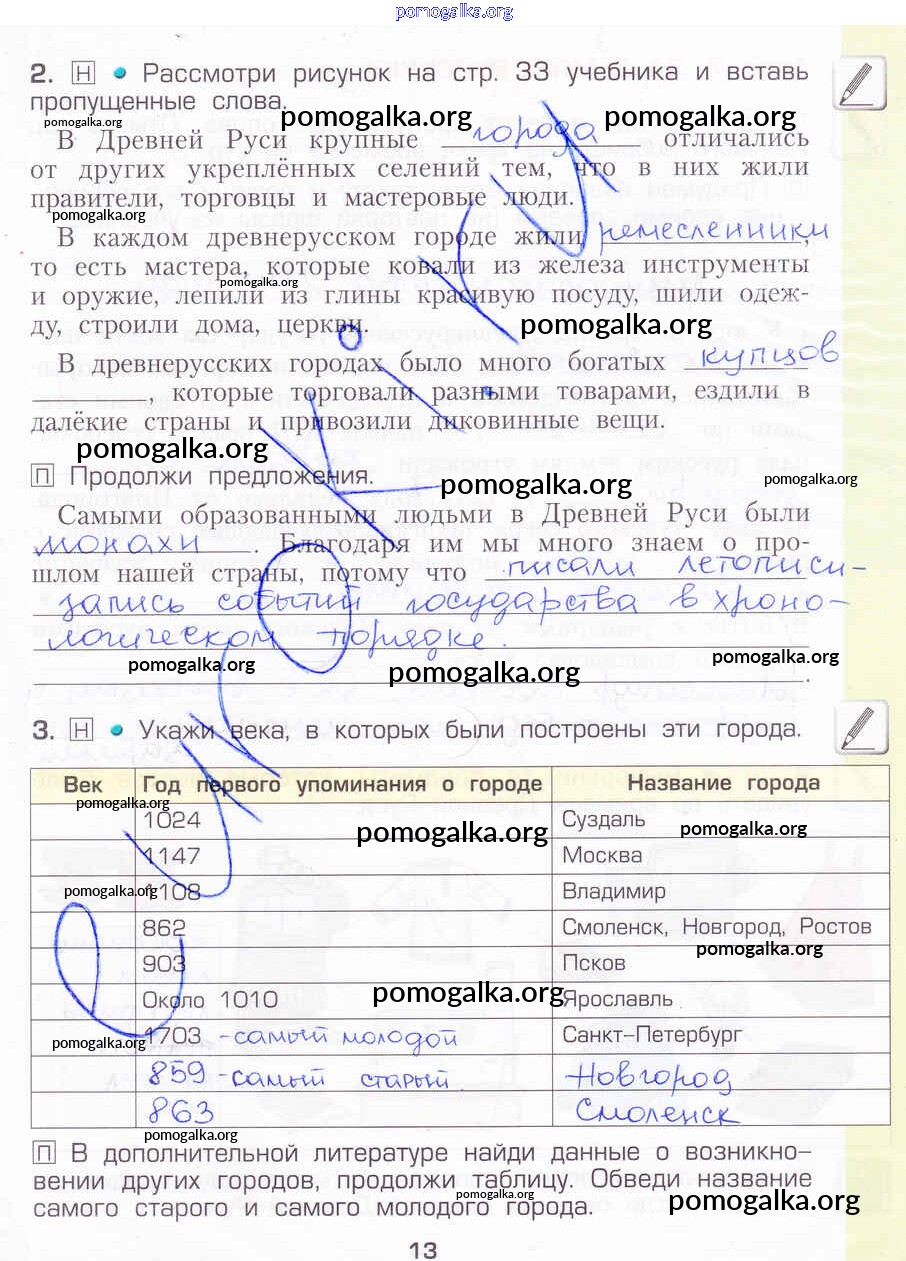 pomogalka.org
2. Н • Рассмотри рисунок на стр. 33 учебника и вставь
пропущенные слова.
pomogalka.org
pomogalka.org pomogalka.org
В Древней Руси крупные города отличались
от других укреплённых селений тем, что в них жили
правители, торговцы и мастеровые люди.
pomogalka.org
В каждом древнерусском городе жили ремесленники,
то есть мастера, которые ковали из железа инструменты
pomogalka.org
и оружие, лепили из глины красивую посуду, шили одеж-
ду, строили дома, церкви.
pomogalka.org
В древнерусских городах было много богатых купцов
, которые торговали разными товарами, ездили в
далёкие страны и привозили диковинные вещи.
pomogalka.org
П Продолжи предложения.
pomogalka.org pomogalka.org
Самыми образованными людьми в Древней Руси были
монахи. Благодаря им мы много знаем о про-
шлом нашей страны, потому что писали летописи-
запись событий государства в хроно-
логическом порядке.
pomogalka.org pomogalka.org pomogalka.org
.
3. Н • Укажи века, в которых были построены эти города.
Век Год первого упоминания о городе Название города
pomogalka.org
1024 Суздаль
pomogalka.org pomogalka.org
1147 Москва
1108 Владимир
pomogalka.org
862 Смоленск, Новгород, Ростов
pomogalka.org
903 Псков
Около 1010 Ярославль
pomogalka.org
1703 -самый молодой Санкт-Петербург
pomogalka.org
859 -самый старый. Новгород
863 Смоленск
pomogalka.org
П В дополнительной литературе найди данные о возникно-
вении других городов, продолжи таблицу. Обведи название
pomogalka.org pomogalka.org
самого старого и самого молодого города.
13